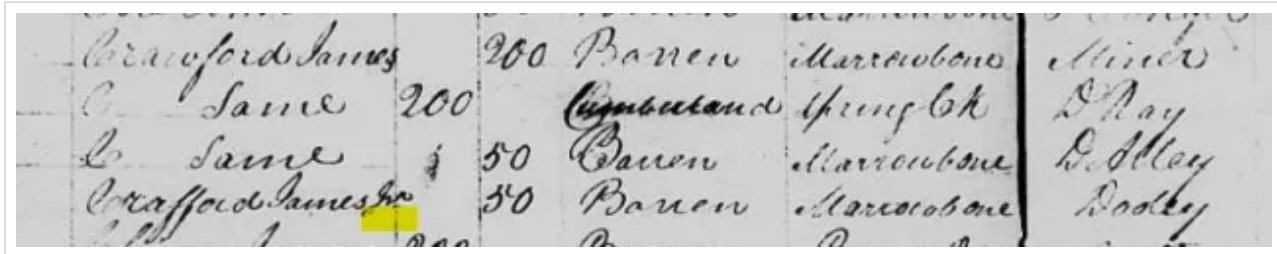 Crawford James 200 Barren Marrowbone Miner
C Same 200 Cumberland Spring Ck D Ray
C Same 50 Barren Marrowbone D Alley
Crafford James Jr 50 Barren Marrowbone Dodey